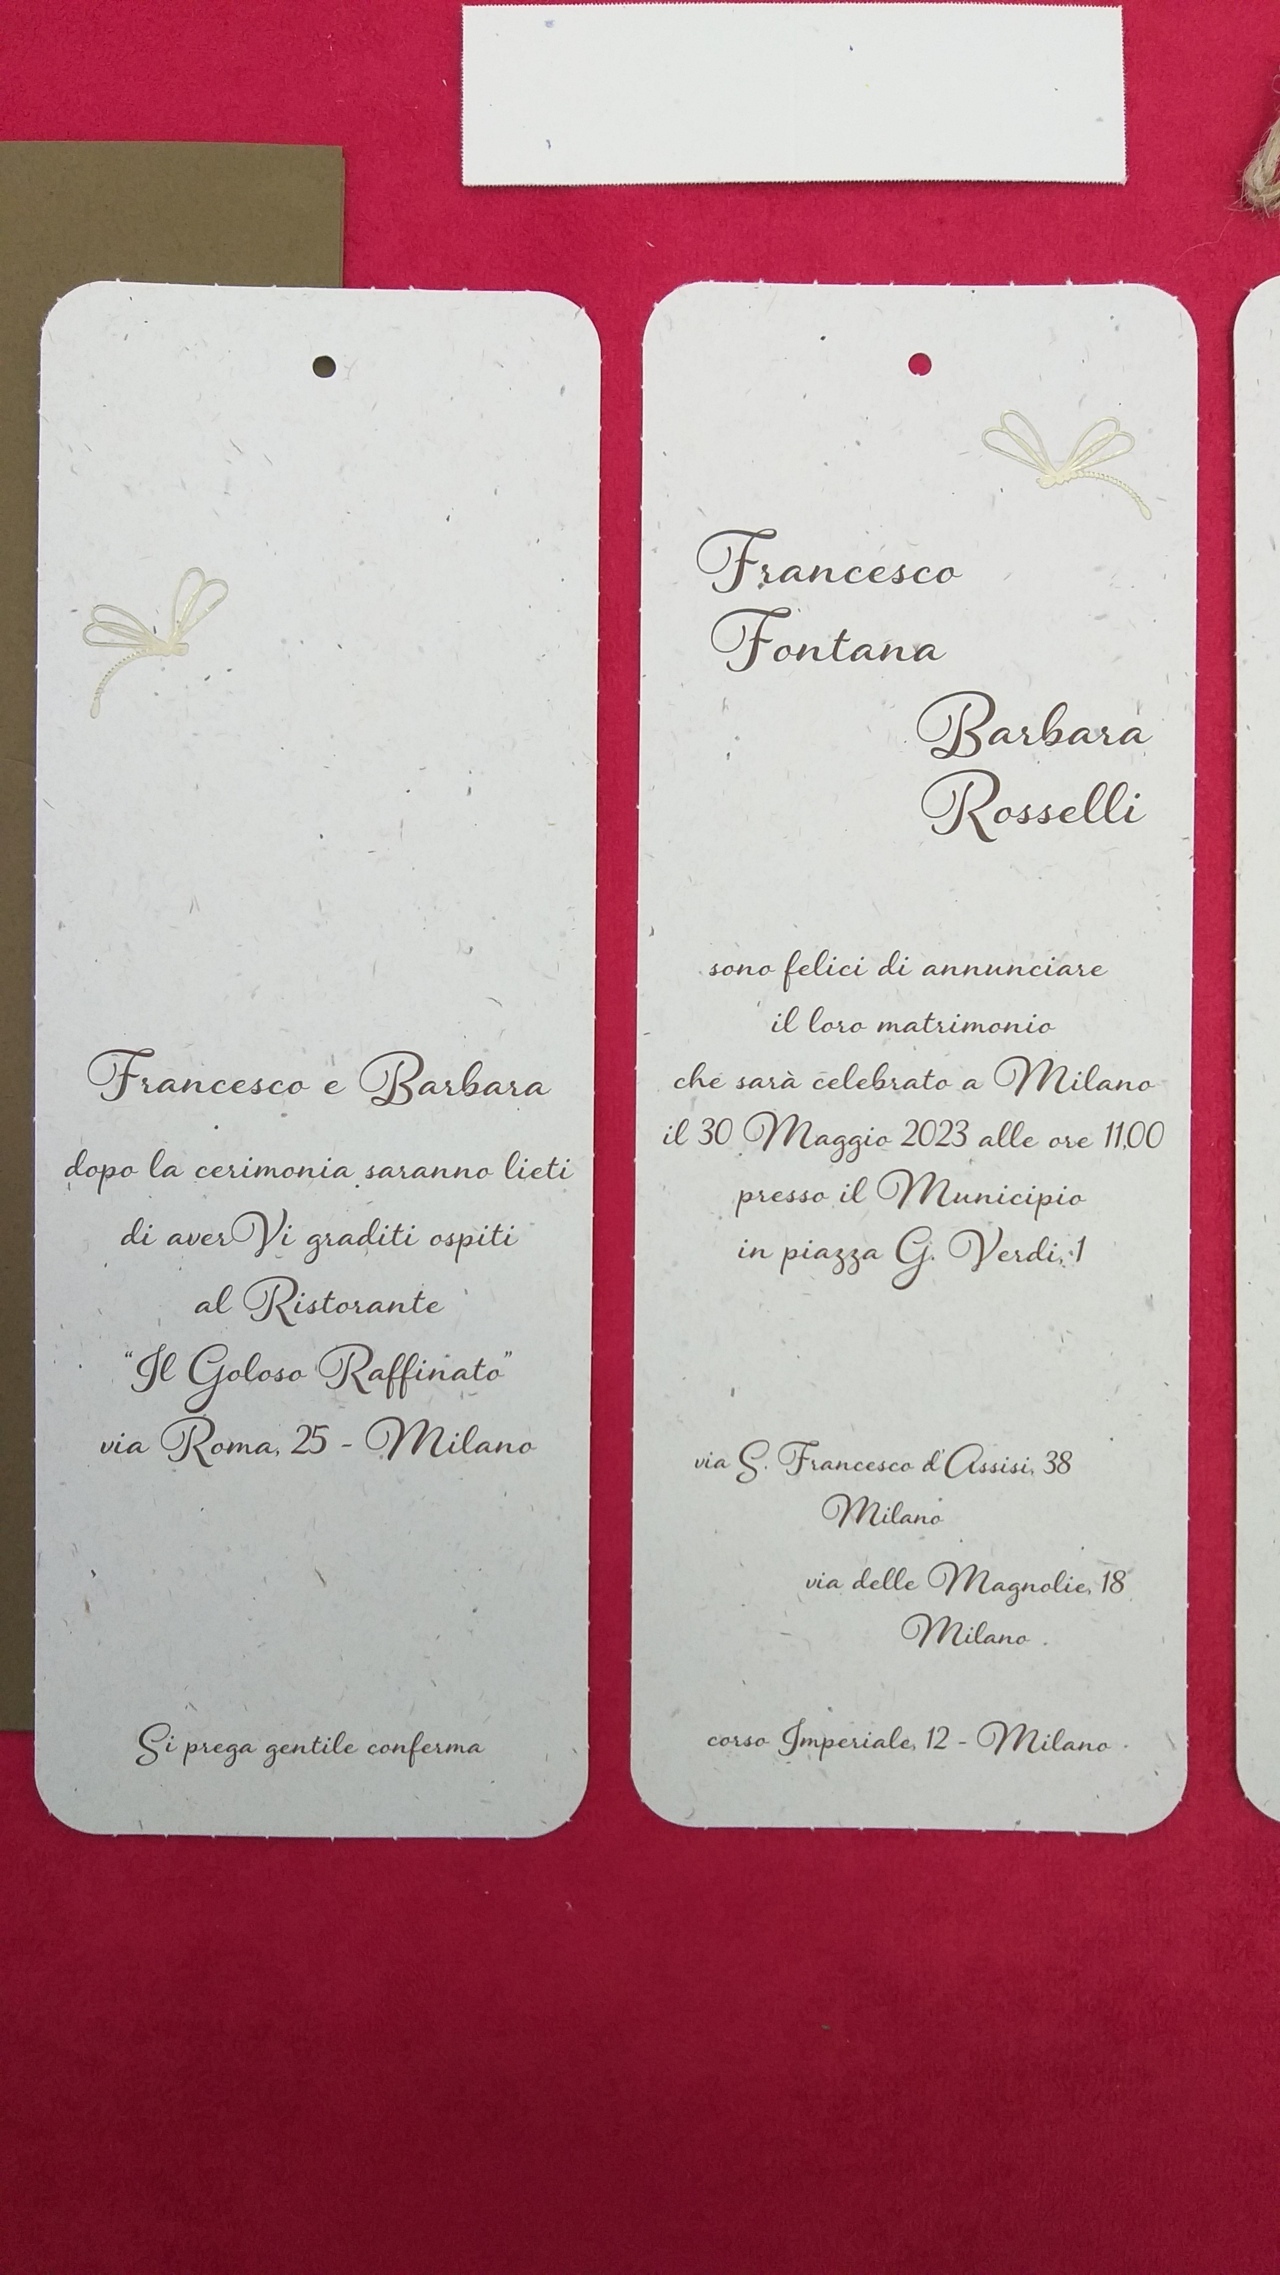 Francesco e Barbara
dopo la cerimonia saranno lieti
di averVi graditi ospiti
al Ristorante
“Il Goloso Raffinato”
via Roma, 25 - Milano
Si prega gentile conferma
Francesco
Fontana
Barbara
Rosselli
sono felici di annunciare
il loro matrimonio
che sarà celebrato a Milano
il 30 Maggio 2023 alle ore 11,00
presso il Municipio
in piazza G. Verdi, 1
via S. Francesco d'Assisi, 38
Milano
via delle Magnolie, 18
Milano
corso Imperiale, 12 - Milano